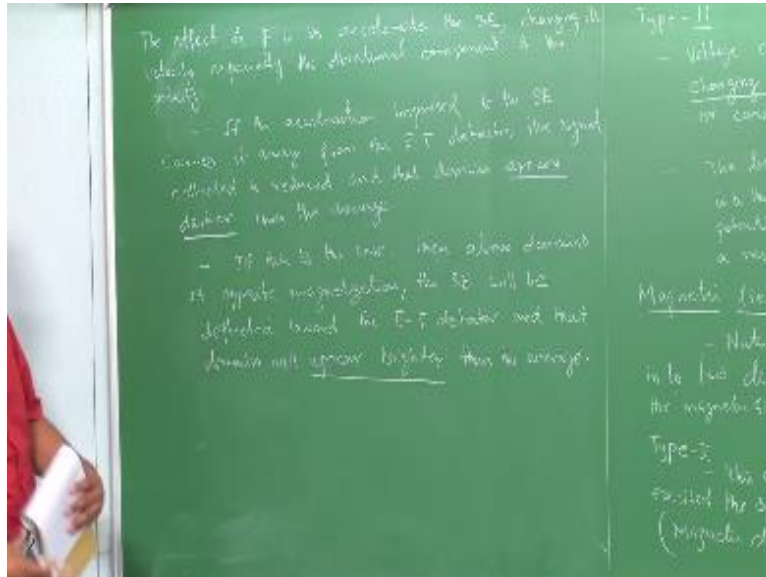 The effect of F is to accelerate the SE, changing its
velocity especially the directional component of the
velocity
- If the acceleration imparted to the SE
carries it away from the E-T detector, the signal
collected is reduced and that domain appears
darker than the average
- If this is the case, then above domains
of opposite magnetization, the SE will be
deflected toward the E-T detector and that
domain will appear brighter than the average.
Type-II
- Voltage
changing
- The
a
Magnetic
- Natu
in to two
the magnetic
Type-I
- This
the
(Magnetic